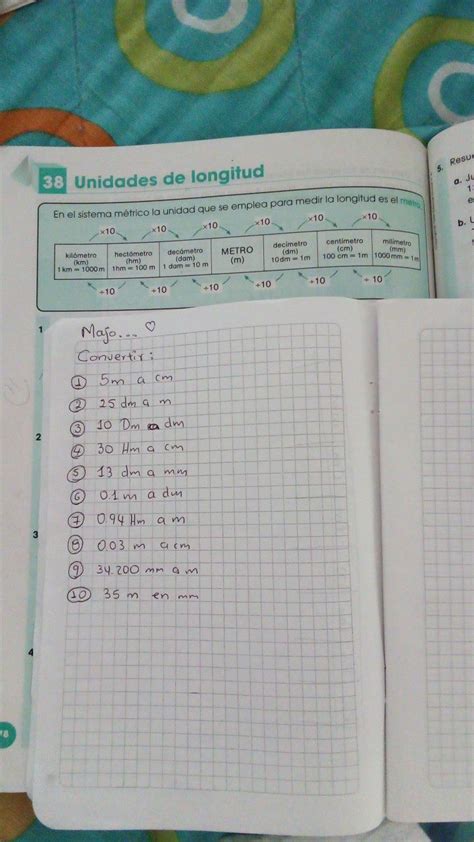 38 Unidades de longitud
En el sistema métrico la unidad que se emplea para medir la longitud es el metro
×10 ×10 ×10 ×10 ×10 ×10
kilómetro (km) 1 km = 1000 m
hectómetro (hm) 1hm = 100 m
decámetro (dam) 1 dam = 10 m
METRO (m)
decímetro (dm) 10 dm = 1m
centímetro (cm) 100 cm = 1m
milímetro (mm) 1000 mm = 1m
÷10 ÷10 ÷10 ÷10 ÷10 ÷ 10
5. Resue
a. Ju
b. L
1
2
3
4
78
Majo... ♡
Convertir:
① 5m a cm
② 25 dm a m
③ 10 Dm a dm
④ 30 Hm a cm
⑤ 13 dm a mm
⑥ 0.1 m a dm
⑦ 0.94 Hm a m
⑧ 0.03 m a cm
⑨ 34.200 mm a m
⑩ 35 m en mm